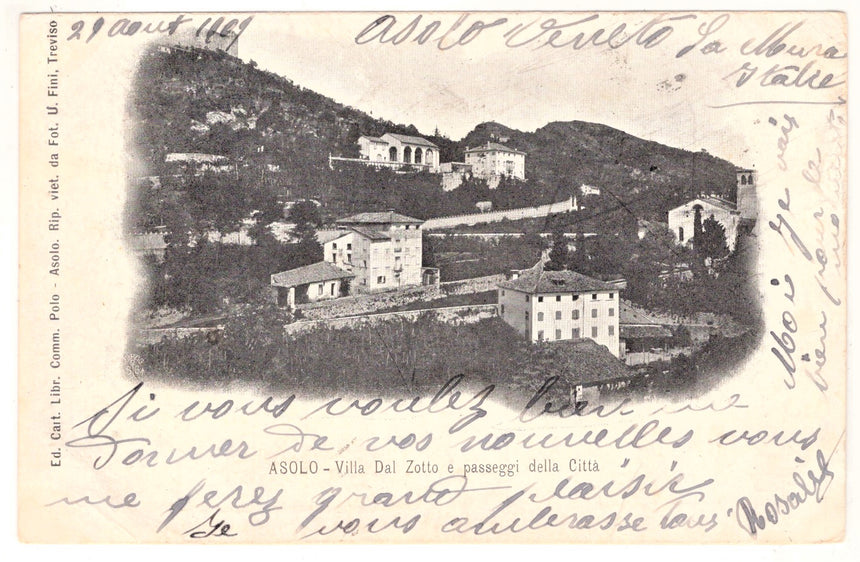 29 aout 1909
Asolo Veneto La Mura
Italie
Moi je vais
bien pour le
Si vous voulez bien me
donner de vos nouvelles vous
me ferez grand plaisir
Je vous ambrasse tous
Rosalie
ASOLO - Villa Dal Zotto e passeggi della Città
Ed. Cart. Libr. Comm. Polo - Asolo. Rip. viet. da Fot. U. Fini, Treviso